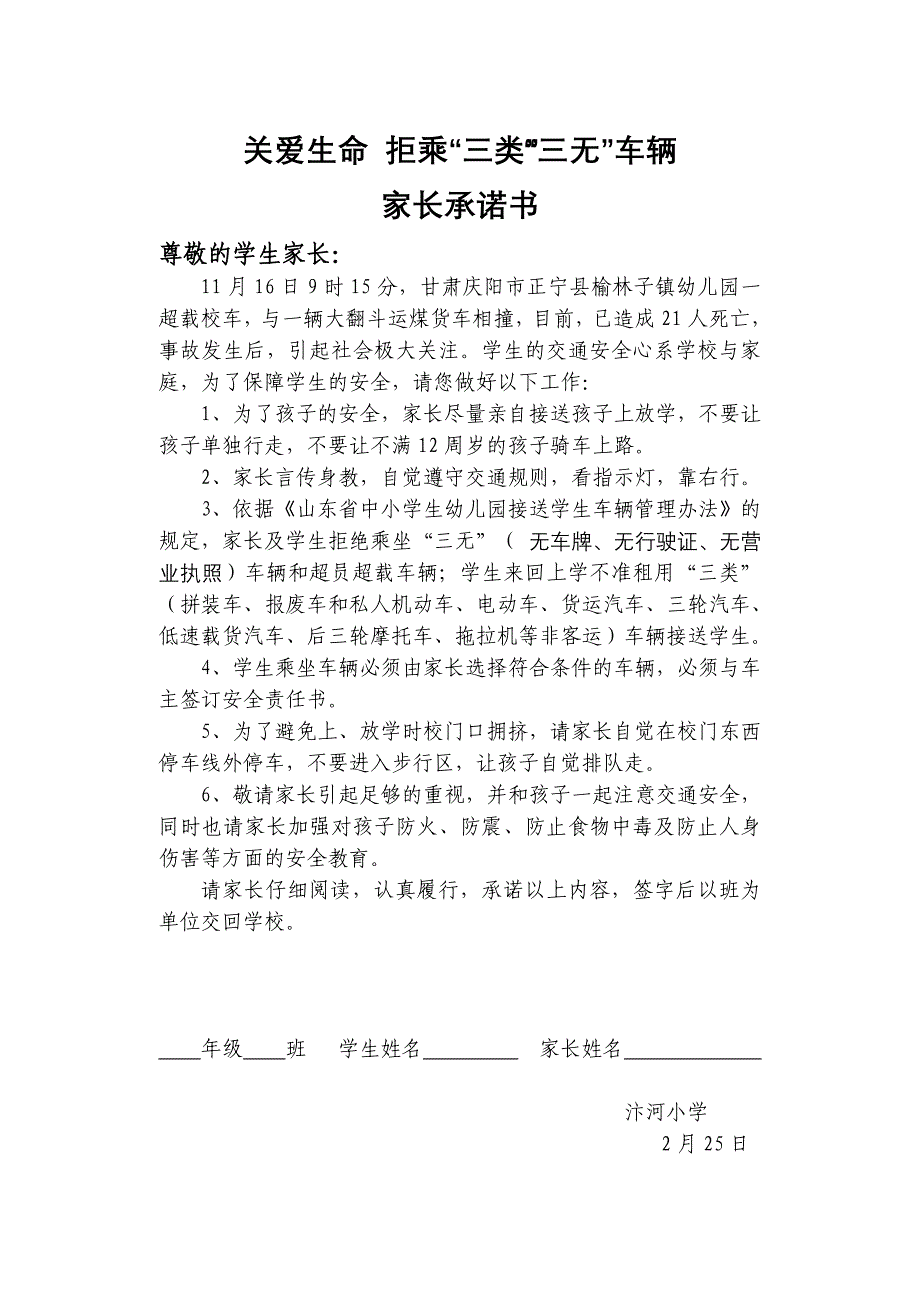 关爱生命 拒乘“三类”“三无”车辆
家长承诺书
尊敬的学生家长：
11月16日9时15分，甘肃庆阳市正宁县榆林子镇幼儿园一
超载校车，与一辆大翻斗运煤货车相撞，目前，已造成21人死亡，
事故发生后，引起社会极大关注。学生的交通安全心系学校与家
庭，为了保障学生的安全，请您做好以下工作：
1、为了孩子的安全，家长尽量亲自接送孩子上放学，不要让
孩子单独行走，不要让不满12周岁的孩子骑车上路。
2、家长言传身教，自觉遵守交通规则，看指示灯，靠右行。
3、依据《山东省中小学生幼儿园接送学生车辆管理办法》的
规定，家长及学生拒绝乘坐“三无”（ 无车牌、无行驶证、无营
业执照）车辆和超员超载车辆；学生来回上学不准租用“三类”
（拼装车、报废车和私人机动车、电动车、货运汽车、三轮汽车、
低速载货汽车、后三轮摩托车、拖拉机等非客运）车辆接送学生。
4、学生乘坐车辆必须由家长选择符合条件的车辆，必须与车
主签订安全责任书。
5、为了避免上、放学时校门口拥挤，请家长自觉在校门东西
停车线外停车，不要进入步行区，让孩子自觉排队走。
6、敬请家长引起足够的重视，并和孩子一起注意交通安全，
同时也请家长加强对孩子防火、防震、防止食物中毒及防止人身
伤害等方面的安全教育。
请家长仔细阅读，认真履行，承诺以上内容，签字后以班为
单位交回学校。
____年级____班 学生姓名_________ 家长姓名_____________
汴河小学
2月25日